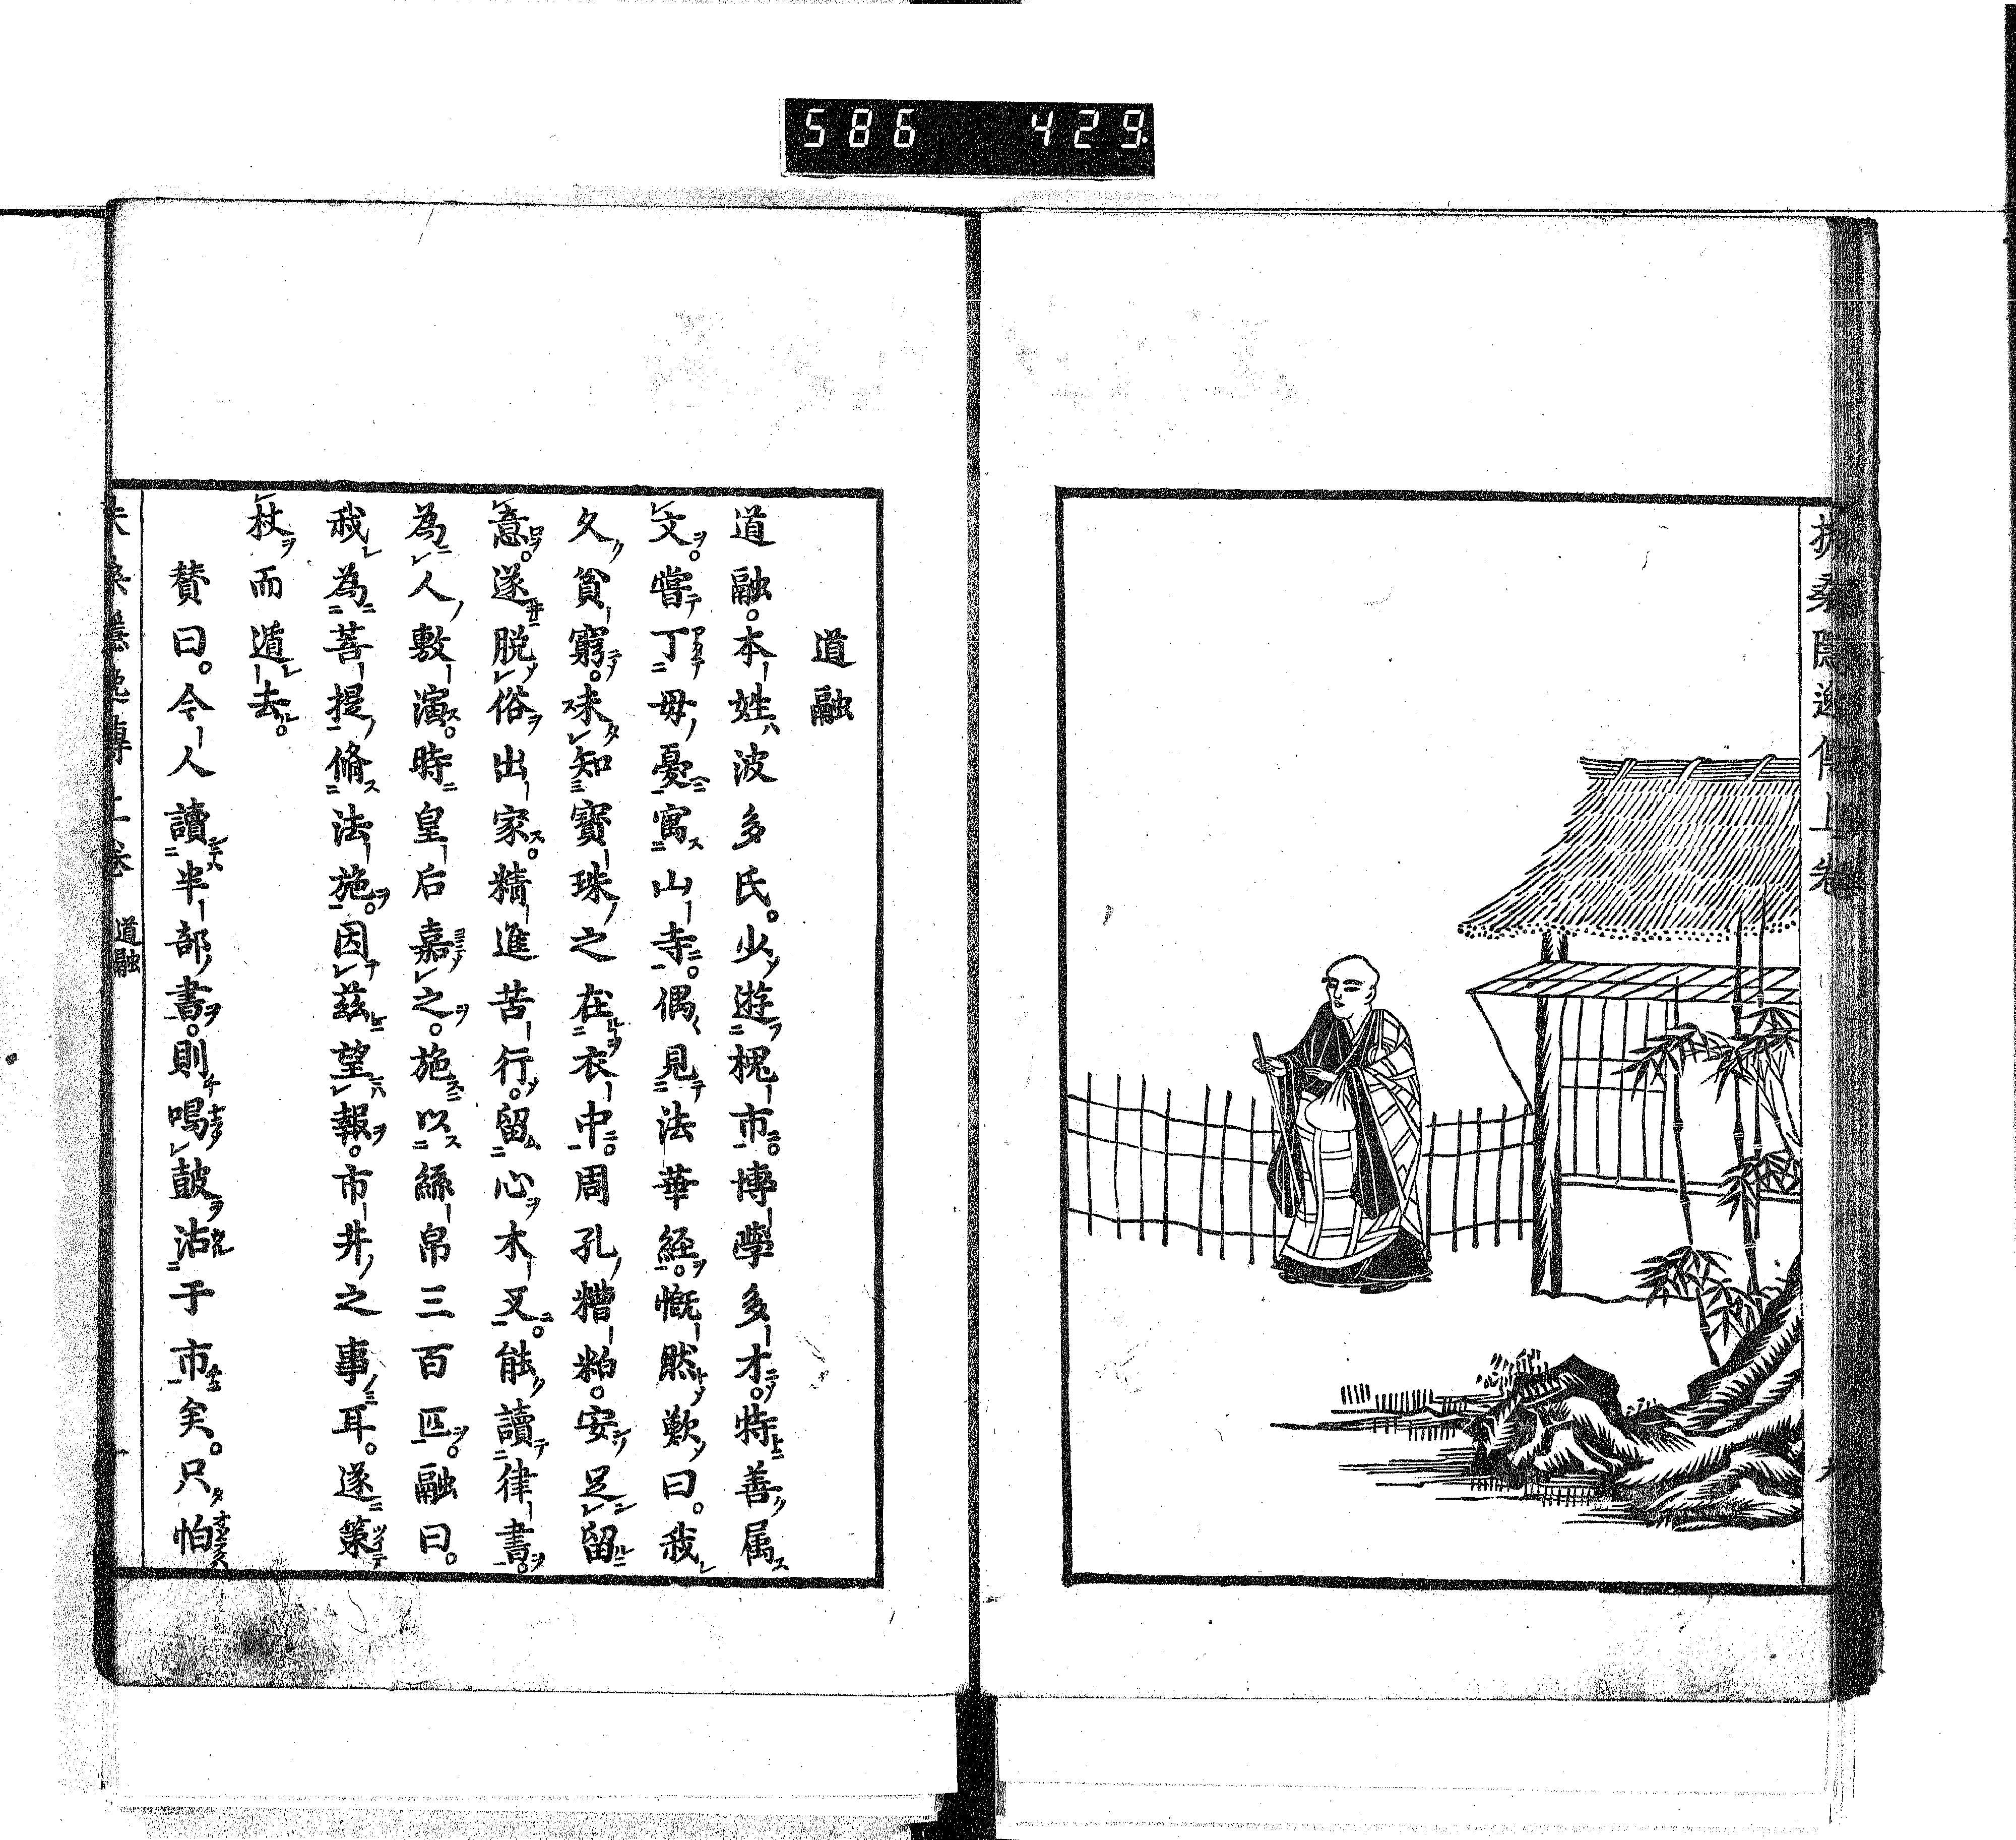 586 429
扶桑隠逸傳上卷
九
道融
道融。本姓波多氏。少遊槐市。博學多才。特善属
文。嘗丁母憂寓山寺。偶見法華経。慨然歎曰。我
久貧窮。未知寶珠之在衣中。周孔糟粕。安足留
意。遂脱俗出家。精進苦行。留心木叉。能讀律書。
為人敷演。時皇后嘉之。施以絲帛三百匹。融曰。
我為菩提脩法施。因茲望報。市井之事耳。遂策
杖而遁去。
賛曰。今人讀半部書。則鳴鼓沽于市矣。只怕
扶桑隠逸傳上卷 道融